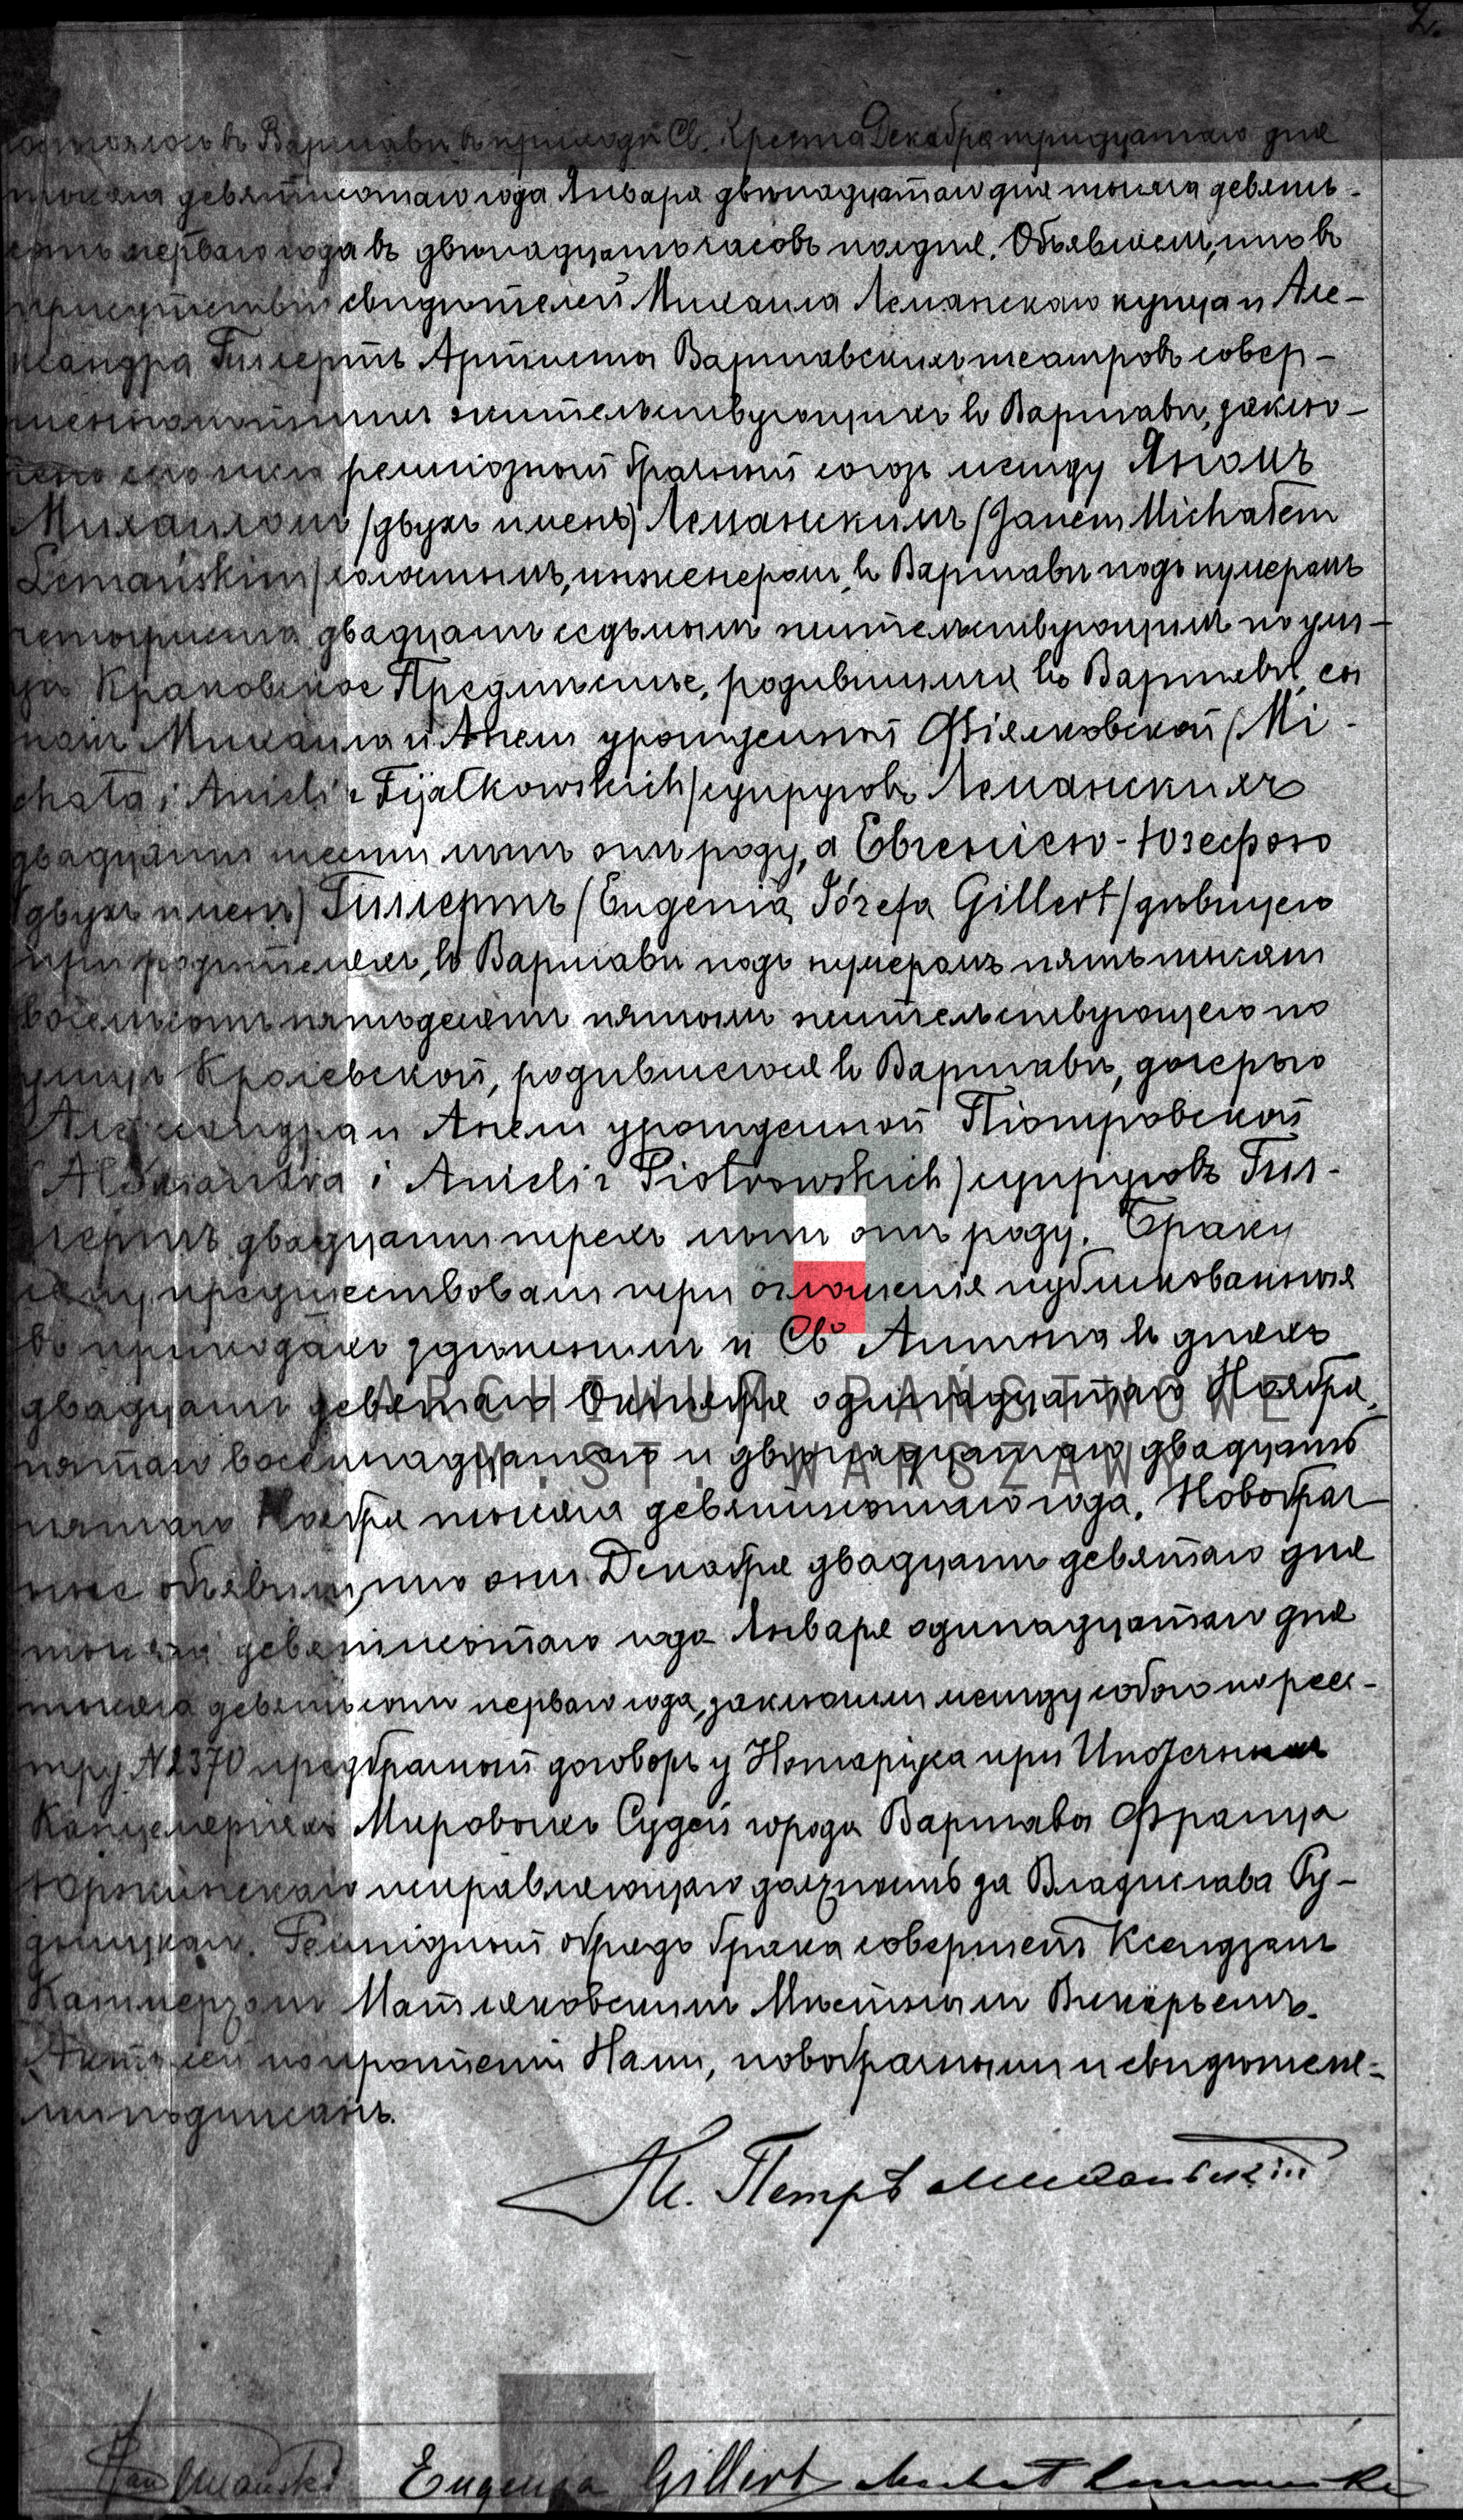 2.
состоялось въ Варшавѣ въ приходѣ Св. Креста Декабря тридцатаго дня
тысяча девятисотаго года Января двѣнадцатаго дня тысяча девять-
сотъ перваго года въ двѣнадцать часовъ полдня. Объявляемъ, что въ
присутствіи свидѣтелей Михаила Леманскаго купца и Але-
ксандра Гиллертъ Артиста Варшавскихъ театровъ совер-
шеннолѣтнихъ жительствующихъ въ Варшавѣ, заклю-
чено сего числа религіозный брачный союзъ между Яномъ
Михаиломъ (двухъ именъ) Леманскимъ (Janem Michałem
Lemańskim) холостымъ, инженеромъ, въ Варшавѣ подъ нумеромъ
четыриста двадцать седьмымъ жительствующимъ по ули-
цѣ Краковское Предмѣстье, родившимся въ Варшавѣ, сы
номъ Михаила и Анели урожденной Фіялковской (Mi-
chała i Anieli z Fijałkowskich) супруговъ Леманскихъ
двадцати шести лѣтъ отъ роду, а Евгеніею-Юзефою
(двухъ именъ) Гиллертъ (Eugenią Józefą Gillert) дѣвицею
при родителяхъ, въ Варшавѣ подъ нумеромъ пять тысячъ
восемьсотъ пятьдесятъ пятымъ жительствующею по
улицѣ Кролевской, родившеюся въ Варшавѣ, дочерью
Александра и Анели урожденной Піотровской
(Aleksandra i Anieli z Piotrowskich) супруговъ Гил-
лертъ двадцати трехъ лѣтъ отъ роду. Браку
сему предшествовали три оглашенія публикованныя
въ приходахъ здѣшнемъ и Св. Антона въ дняхъ
двадцать девятаго Октября одинадцатаго Ноября,
пятаго восемнадцатаго и двѣнадцатаго двадцать
пятаго Ноября тысяча девятисотаго года. Новобрач-
ные объявили, что они Декабря двадцать девятаго дня
тысяча девятисотаго года Января одинадцатаго дня
тысяча девятьсотъ перваго года, заключили между собою по реес-
тру N2370 предбрачный договоръ у Нотаріуса при Ипотечныхъ
Канцеляріяхъ Мировыхъ Судей города Варшава Франца
исправляющаго должность за Владислава Ру-
Религіозный обрядъ брака совершенъ Ксендзомъ
Казимерзомъ Матляковскимъ Мѣстнымъ Викарьемъ.
Актъ сей по прочтеніи Нами, новобрачными и свидѣтеля-
ми подписанъ.
Кс. Петръ
Jan Lemański Eugenja Gillert Michał Lemański
ARCHIWUM PAŃSTWOWE
M.ST. WARSZAWY